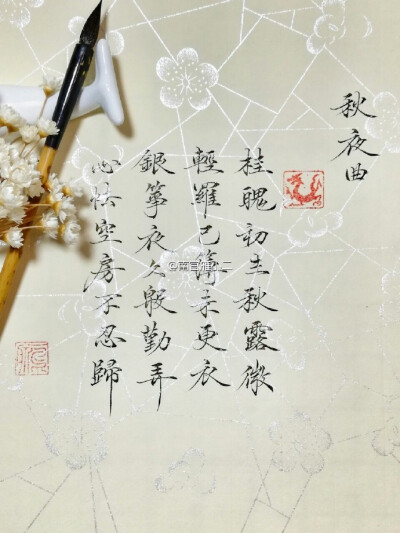 秋夜曲
桂魄初生秋露微
輕羅已薄未更衣
銀箏夜久殷勤弄
心怯空房不忍歸